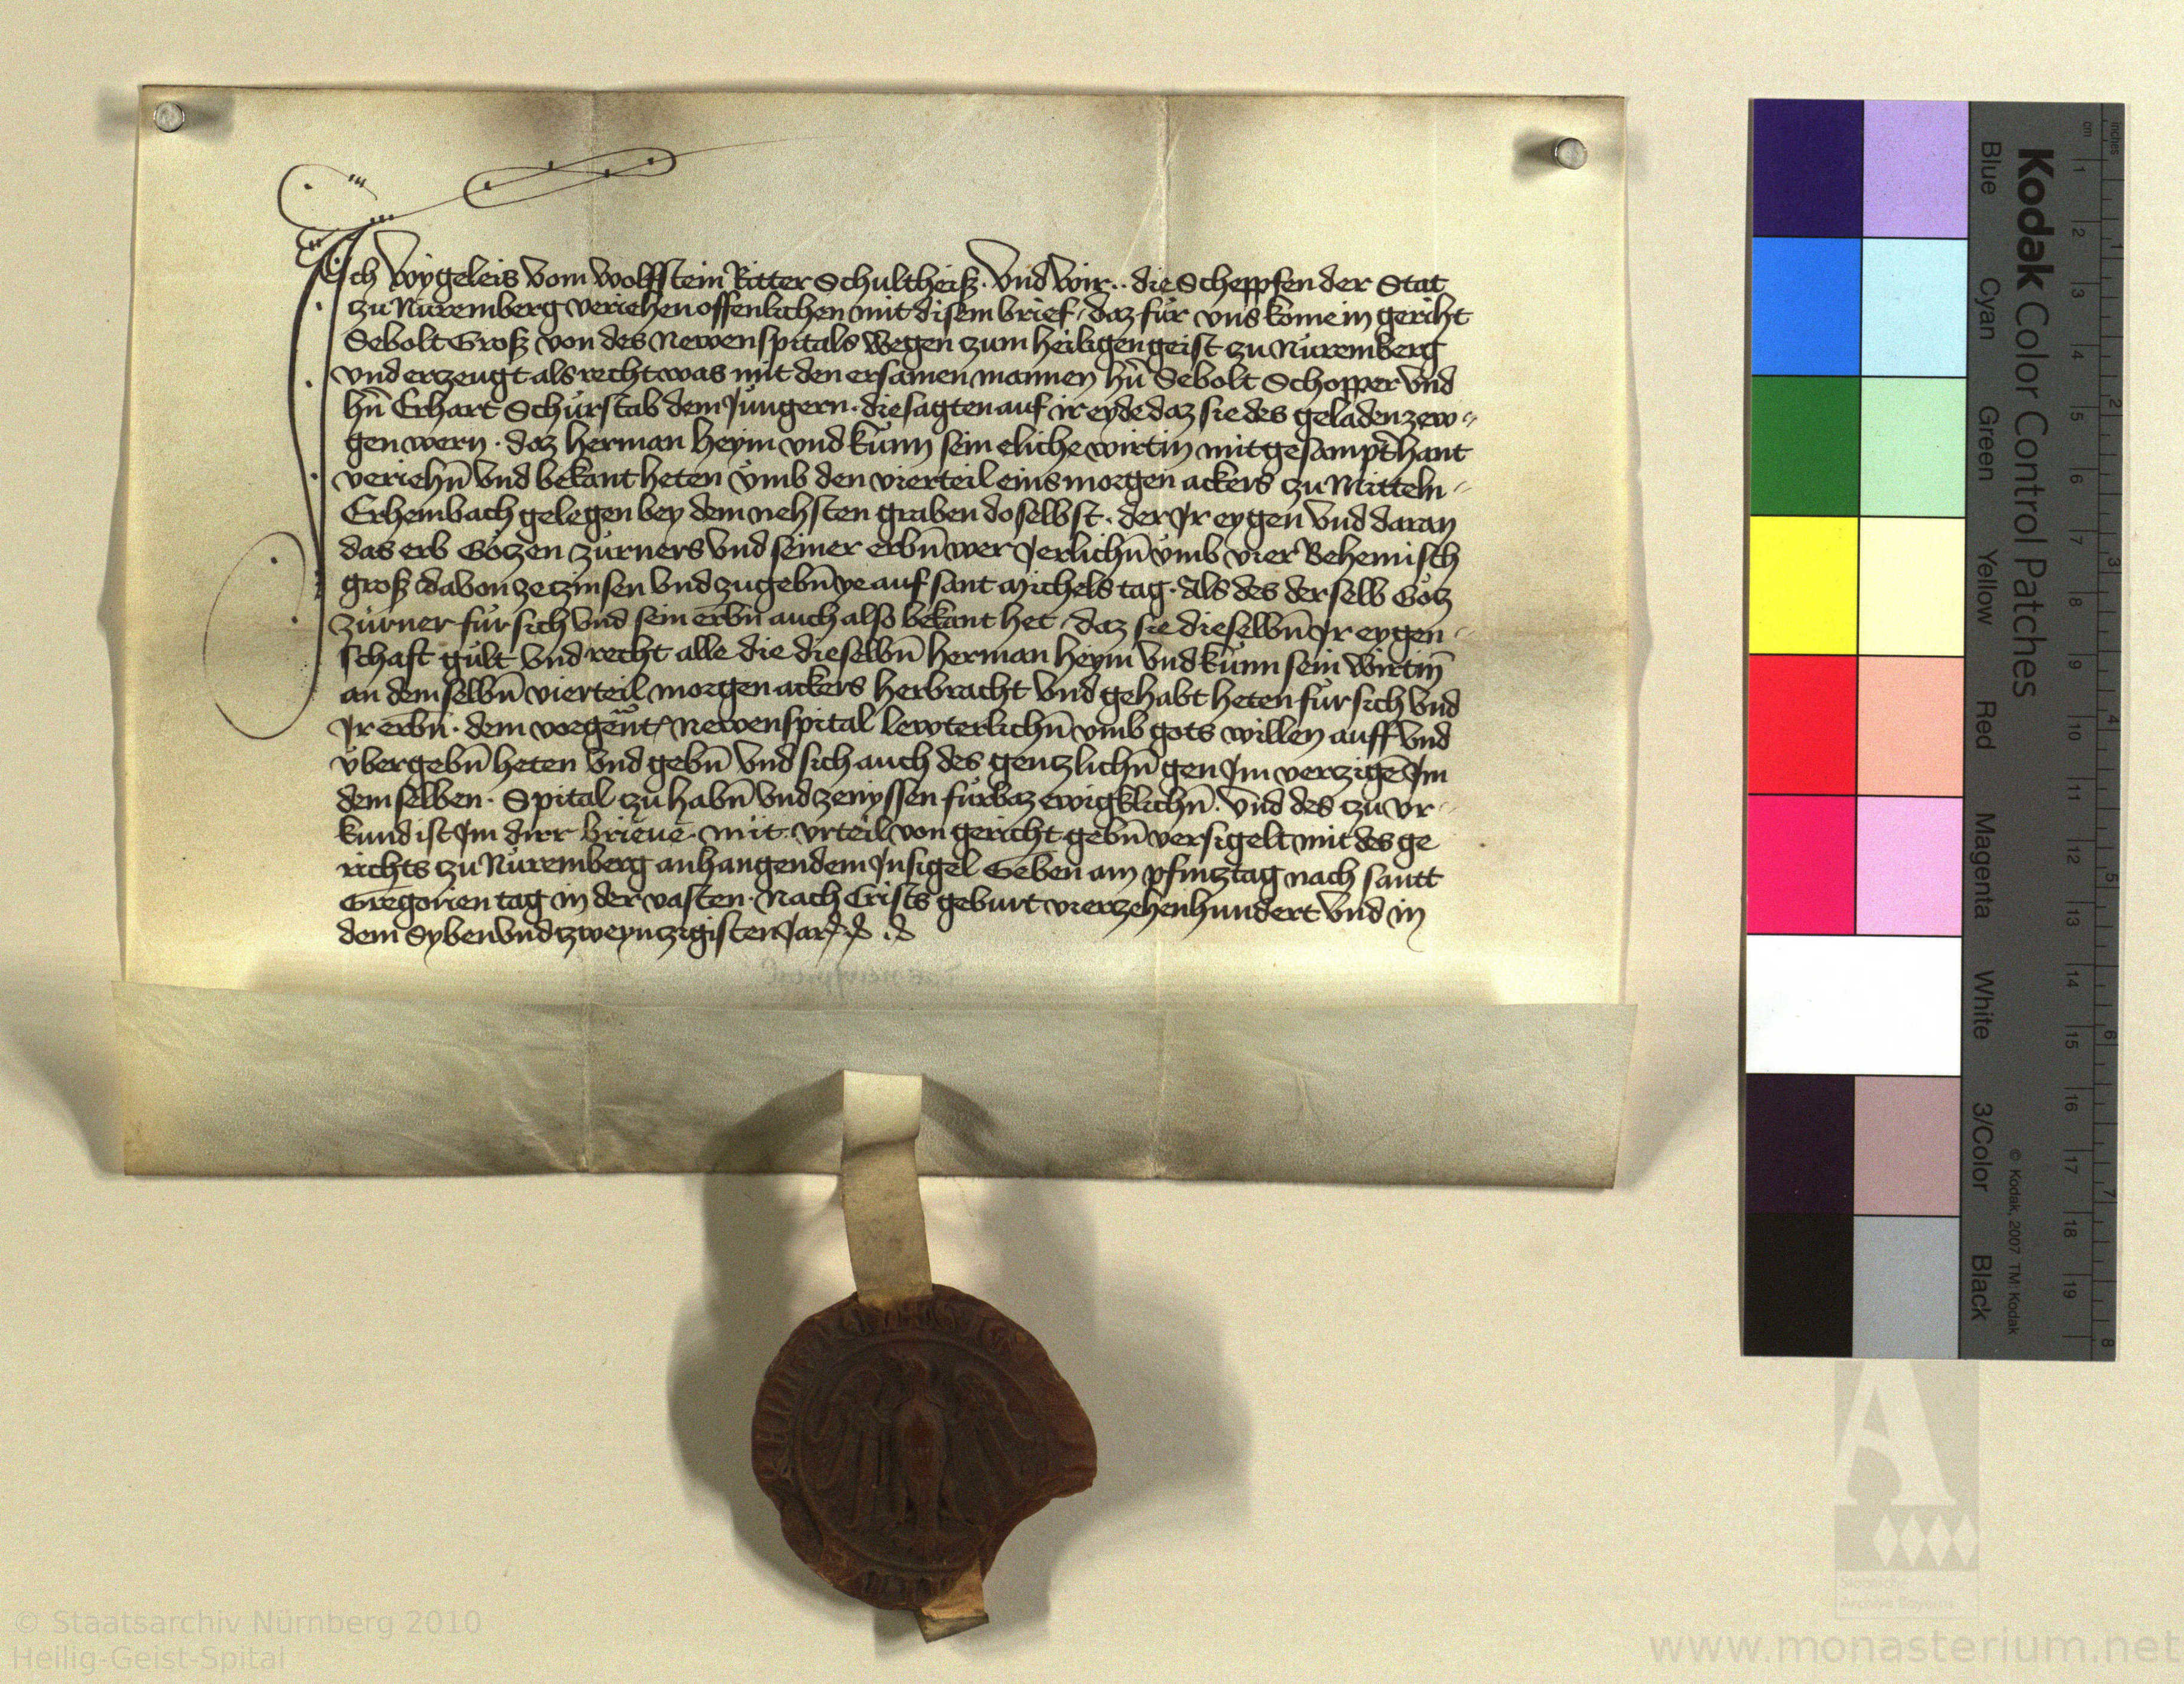 Ich Wygeleis vom Wolffstein Ritter Schultheiß. Vnd Wir .. die Scheppfen der Stat
zu Nuremberg veriehen offenlichen mit disem brief, daz für vns kome in geriht
Sebolt Groß von des Newen spitals Wegen zum heiligen geist zu Nüremberg
vnd erzeugt als recht was mit den ersamen mannen hn̄ Sebolt Schopper vnd
hn̄ Erhart Schürstab dem Jüngern. die sagten auf ir eyde daz sie des geladen zew⸗
gen wern. daz Herman Heym vnd Künn sein eliche wirtin mit gesampt̄ hant
veriehn̄ vnd bekant heten vmb den vierteil eins morgen ackers zu Mitteln⸗
Erhembach gelegen bey dem nehsten graben doselbst. der Jr eygen vnd daran
das erb Götzen zürners vnd seiner erbn̄ wer Jerlichn̄ vmb vier Behemisch
groß dauon ze zinsen vnd zugebn̄ ye auf sant Michels tag. Als des der selb Götz
zürner für sich vnd sein erbn̄ auch also bekant het, daz sie dieselbn̄ Jr eygen⸗
schaft gült vnd recht alle die dieselbn̄ Herman Heym vnd Künn sein Wirtin̄
an dem selbn̄ vierteil morgen ackers herbracht vnd gehabt heten für sich vnd
Jr erbn̄. dem vorgen̄nt Newen spital lewterlichn̄ vmb gots willen auff vnd
vbergebn̄ heten vnd gebn̄ vnd sich auch des gentzlichn̄ gen Jm verzigē Jm
dem selben. Spital zu habn̄ vnd zenyssen fürbaz ewigklichn̄. vnd des zu vr⸗
kund ist Jm dirr brieue. mit. vrteil von gericht gebn̄ versigelt mit des ge
richts zu Nüremberg anhangendem Jnsigel Geben am pfintztag nach santt
Gregorien tag in der vasten. Nach Crists geburt vierzehenhundert vnd in
dem Sybenvndtzweyntzigisten Jar
Kodak Color Control Patches
Blue
Cyan
Green
Yellow
Red
Magenta
White
3/Color
Black
© Kodak, 2007 TM: Kodak
inches
cm
1
2
3
4
5
6
7
8
9
10
11
12
13
14
15
16
17
18
19
1
2
3
4
5
6
7
8
A
Staatliche
Archive Bayerns
© Staatsarchiv Nürnberg 2010
Heilig-Geist-Spital
www.monasterium.net